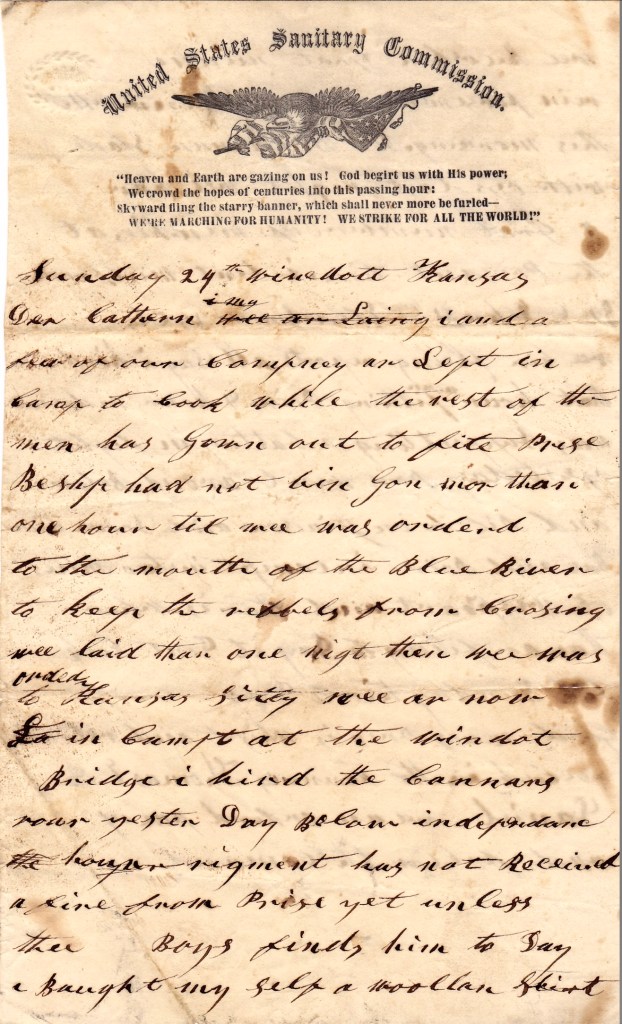 United States Sanitary Commission.
"Heaven and Earth are gazing on us! God begirt us with His power;
We crowd the hopes of centuries into this passing hour:
Skyward fling the starry banner, which shall never more be furled—
WE'RE MARCHING FOR HUMANITY! WE STRIKE FOR ALL THE WORLD!"
Sunday 24th winedott Kansas
i my
Der Cathern wee ar Laing i and a
few of our Compney ar Lept in
Camp to Cook while the rest of the
men has Gown out to fite Prise
had not bin Gon mor than
one hour til wee was orderd
to the mouth of the Blue River
to keep the rebbels from Crosing
wee laid thar one nigt then wee was
orded
to Kansas sitty wee ar now
La in Campt at the windot
Bridge i hird the Cannans
rour yester Day Below independanc
the rigment has not Received
a fire from Prise yet unless
thee Boys finds him to Day
i Baught my self a woollan Shirt